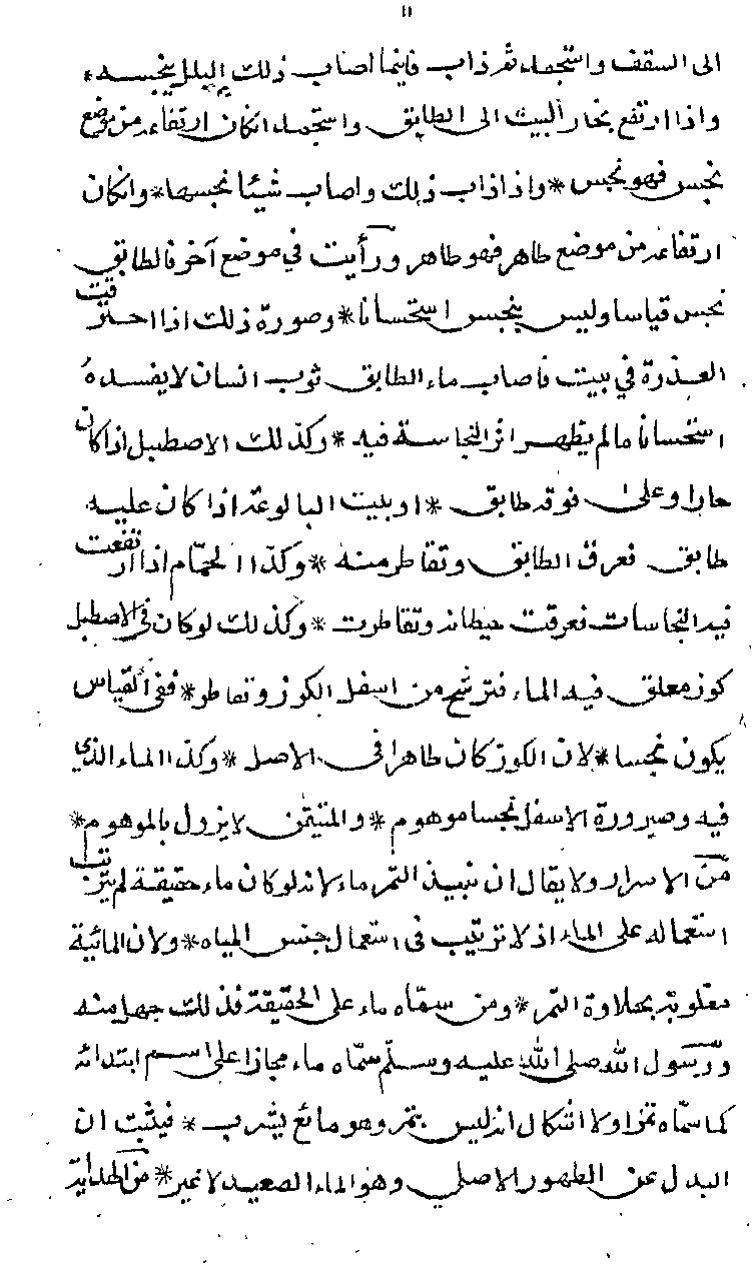 ١١
الى السقف واستجمد ثم ذاب فاينما اصاب ذلك البلل ينجسه *
واذا ارتفع بخار البيت الى الطابق واستجمد انكان ارتفاعه من موضع
نجس فهو نجس * واذا ذاب ذلك واصاب شيئا نجسها * وانكان
ارتفاعه من موضع طاهر فهو طاهر ورأيت في موضع آخر فالطابق
نجس قياسا وليس بنجس استحسانا * وصورة ذلك اذا احترقت
العذرة في بيت فاصاب ماء الطابق ثوب انسان لا يفسده
استحسانا مالم يظهر اثر النجاسة فيه * وكذلك الاصطبل اذا كان
حارا وعلى فوقه طابق * او بيت البالوعة اذا كان عليه
طابق فعرق الطابق وتقاطر منه * وكذا الحمّام اذا ارتفعت
فيه النجاسات فعرقت حيطانه وتقاطرت * وكذلك لو كان في الاصطبل
كوز معلق فيه الماء فترشح من اسفل الكوز وتقاطر * ففي القياس
يكون نجسا * لان الكوز كان طاهرا في الاصل * وكذا الماء الذي
فيه وصيرورة الاسفل نجسا موهوم * والمتيقن لا يزول بالموهوم *
من الاسرار ولا يقال ان نبيذ التمر ماء لانه لو كان ماء حقيقة لم يترتب
استعماله على الماء اذ لا ترتيب في استعمال جنس المياه * ولان المائية
مغلوبة بحلاوة التمر * ومن سمّاه ماء على الحقيقة فذلك جهل منه
ورسول الله صلى الله عليه وسلّم سمّاه ماء مجازا على اسم ابتدائه
كما سمّاه تمرا ولا اشكال انه ليس بتمر وهو مائع يشرب * فيثبت ان
البدل عن الطهور الاصلي وهو الماء الصعيد لا غير * من الهداية